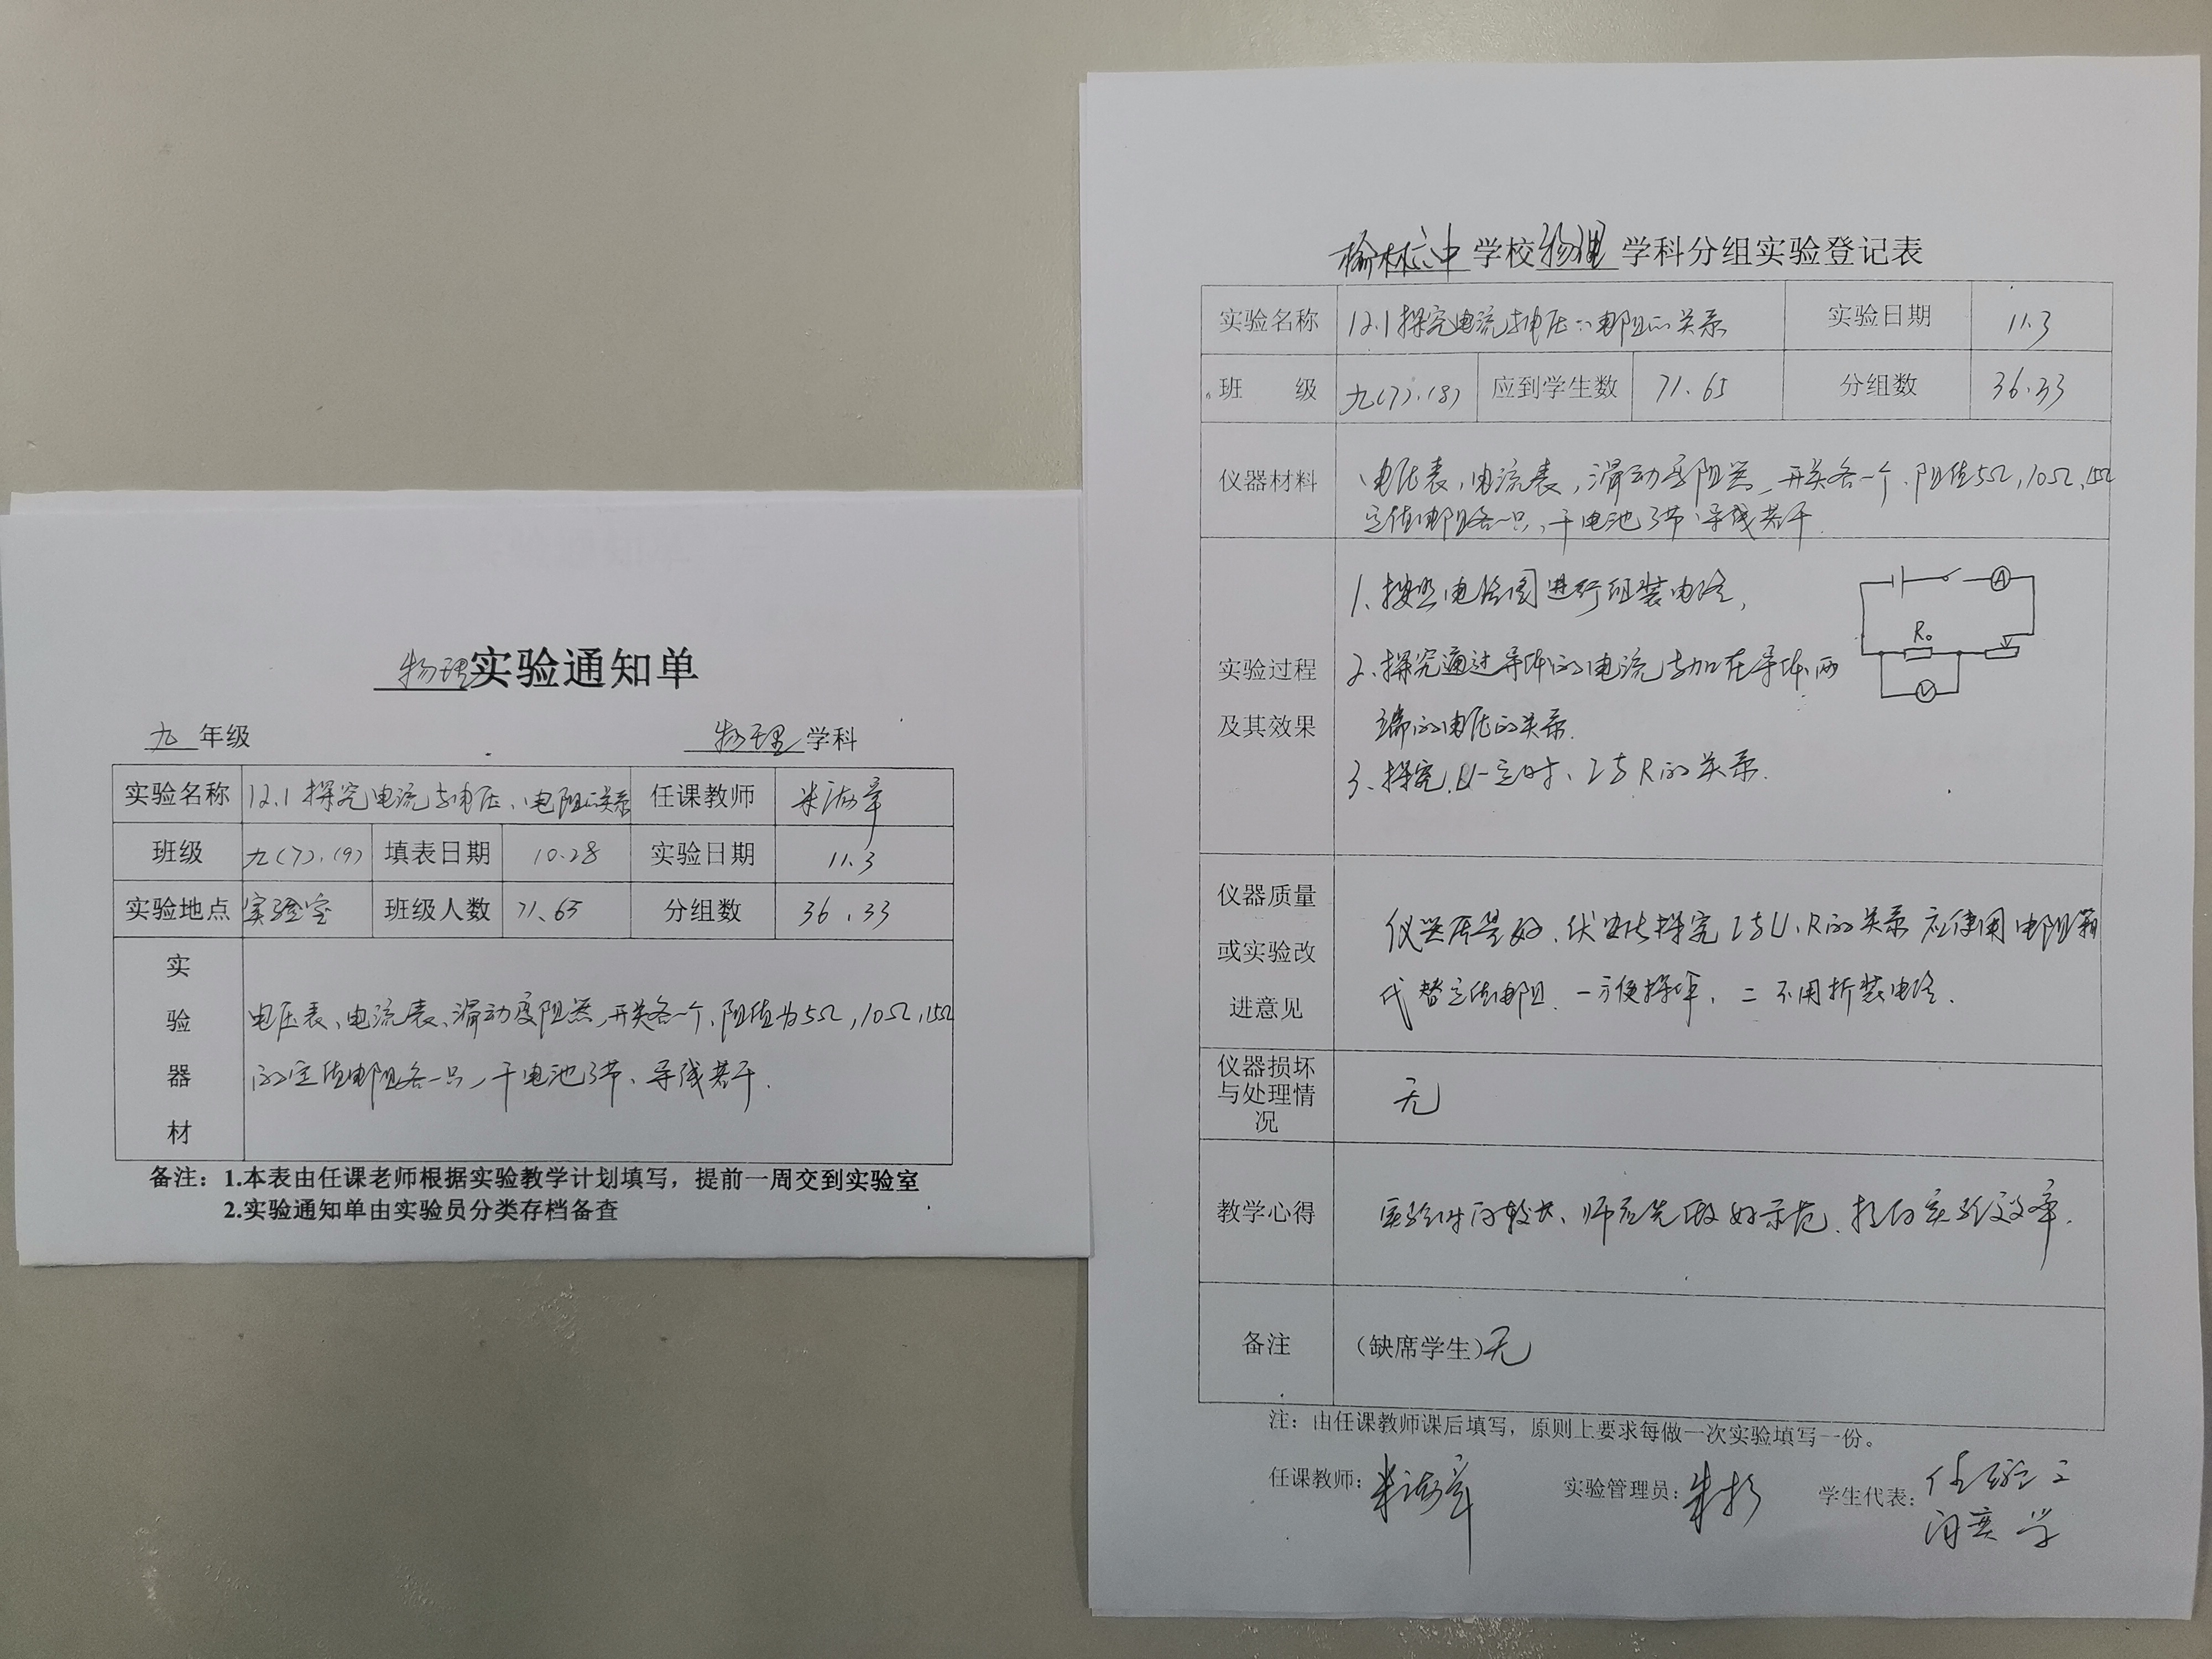 物理实验通知单
九年级 物理学科
实验名称 12.1 探究电流与电压、电阻的关系 任课教师 米海章
班级 九(7).(9) 填表日期 10.28 实验日期 11.3
实验地点 实验室 班级人数 71、65 分组数 36.33
实验器材
电压表、电流表、滑动变阻器,开关各一个、阻值为5Ω,10Ω,15Ω
的定值电阻各一只,干电池3节、导线若干.
备注:1.本表由任课老师根据实验教学计划填写,提前一周交到实验室
2.实验通知单由实验员分类存档备查
榆林六中学校物理学科分组实验登记表
实验名称 12.1探究电流与电压、电阻的关系 实验日期 11.3
班 级 九(7).(8) 应到学生数 71.65 分组数 36.33
仪器材料
电压表、电流表,滑动变阻器,开关各一个、阻值5Ω,10Ω、15Ω
定值电阻各一只,干电池3节、导线若干.
实验过程
及其效果
1、按照电路图进行组装电路,
2、探究通过导体的电流与加在导体两
端的电压的关系.
3、探究U一定时、I与R的关系.
A
R₀
V
仪器质量
或实验改
进意见
仪器质量好、伏安法探究I与U、R的关系应使用电阻箱
代替定值电阻.一方便操作,二不用拆装电路.
仪器损坏
与处理情
况
无
教学心得
师应先做好示范、提高实验效率.
备注 (缺席学生)无
注:由任课教师课后填写,原则上要求每做一次实验填写一份。
任课教师:米海章 实验管理员:朱 学生代表: